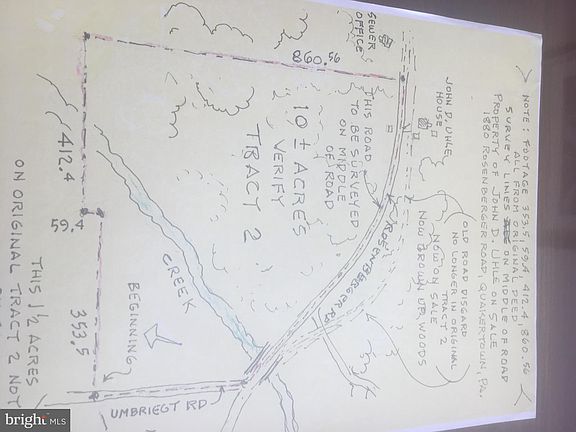 NOTE: FOOTAGE 353.5, 59.4, 412.4, 860.56
ALL FROM ORIGINAL DEED
SURVEY LINES ON MIDDLE OF ROAD
PROPERTY OF JOHN D. UHLE ON SALE
1880 ROSENBERGER ROAD, QUAKERTOWN, PA.
OLD ROAD DISGARD
NO LONGER IN ORIGINAL
TRACT 2
NOW ON SALE
NOW GROWN UP, WOODS
JOHN D. UHLE
HOUSE
SEWER
OFFICE
860.56
THIS ROAD
TO BE SURVEYED
ON MIDDLE
OF ROAD
ROSENBERGER RD
10 ± ACRES
VERIFY
TRACT 2
CREEK
412.4
59.4
353.5
BEGINNING
UMBRIEGT RD
THIS 1 1/2 ACRES
ON ORIGINAL TRACT 2 NOT
bright MLS